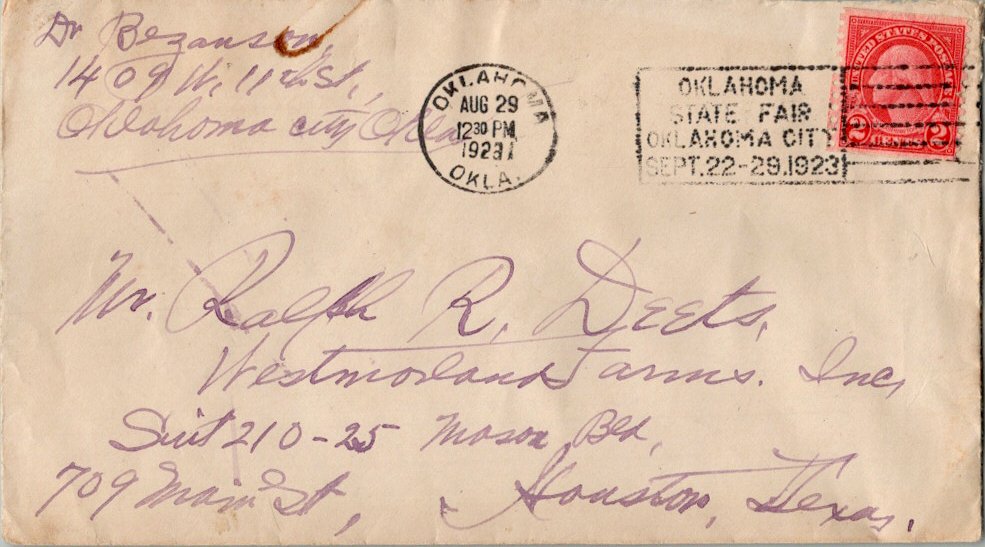 Dr Bezanson,
1409 W. 11th St.,
Oklahoma city Okla
OKLAHOMA
AUG 29
12 30 PM
1923
OKLA.
OKLAHOMA
STATE FAIR
OKLAHOMA CITY
SEPT. 22-29.1923
UNITED STATES POSTAGE
2 CENTS 2
Mr. Ralph R. Deets,
Westmoreland Farms. Inc,
Suit 210-25 Mason Bld,
709 Main St,
Houston, Texas.